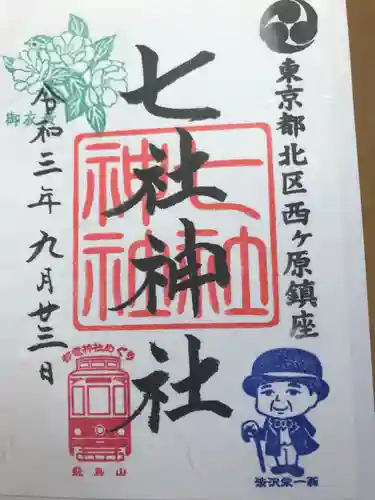 東京都北区西ヶ原鎮座
七社神社
七社
神社
御衣黄
令和三年九月廿三日
都電神社めぐり
飛鳥山
渋沢栄一翁